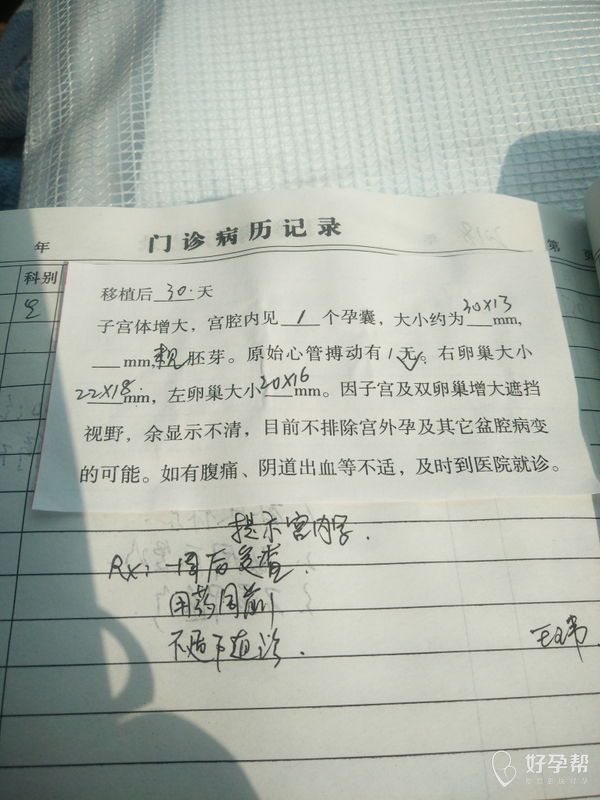 年
门诊病历记录
第 页
科别
移植后 30 天
子宫体增大，宫腔内见 1 个孕囊，大小约为 30X13 mm，
___mm,未见胚芽。原始心管搏动有/无√。右卵巢大小
22X18 mm，左卵巢大小 20X16 mm。因子宫及双卵巢增大遮挡
视野，余显示不清，目前不排除宫外孕及其它盆腔病变
的可能。如有腹痛、阴道出血等不适，及时到医院就诊。
提示宫内孕.
Rx: 一周后复查.
用药同前
不适下随诊.
好孕帮